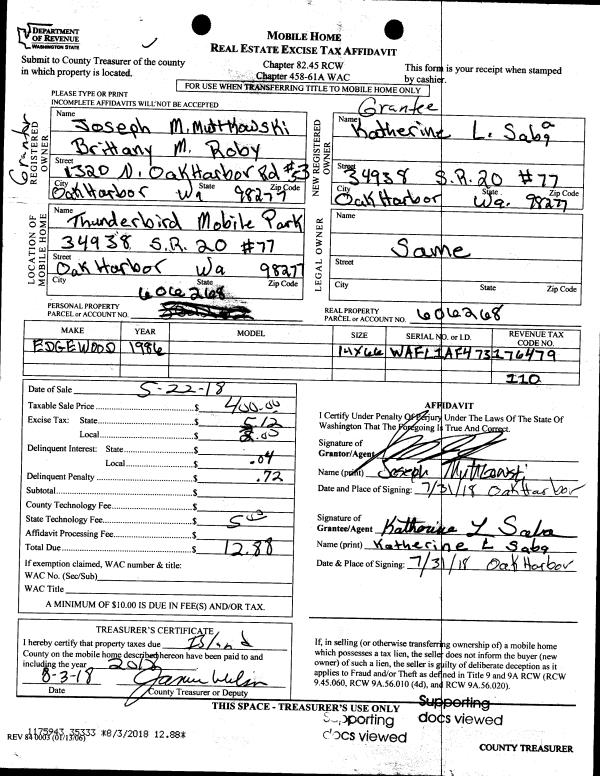 DEPARTMENT
OF REVENUE
WASHINGTON STATE
MOBILE HOME
REAL ESTATE EXCISE TAX AFFIDAVIT
Submit to County Treasurer of the county
in which property is located.
Chapter 82.45 RCW
Chapter 458-61A WAC
This form is your receipt when stamped
by cashier.
FOR USE WHEN TRANSFERRING TITLE TO MOBILE HOME ONLY
PLEASE TYPE OR PRINT
INCOMPLETE AFFIDAVITS WILL NOT BE ACCEPTED
Grantor
REGISTERED
OWNER
Name
Joseph M. Muttkowski
Brittany M. Roby
Street
1320 N. Oak Harbor Rd #53
City State Zip Code
Oak Harbor Wa 98277
Grantee
NEW REGISTERED
OWNER
Name
Katherine L. Saba
Street
34938 S.R. 20 #77
City State Zip Code
Oak Harbor Wa. 98277
LOCATION OF
MOBILE HOME
Name
Thunderbird Mobile Park
34938 S.R. 20 #77
Street
Oak Harbor Wa 98277
City State Zip Code
LEGAL OWNER
Name
Same
Street
City State Zip Code
PERSONAL PROPERTY
PARCEL or ACCOUNT NO. 606268
REAL PROPERTY
PARCEL or ACCOUNT NO. 606268
MAKE YEAR MODEL SIZE SERIAL NO. or I.D. REVENUE TAX
CODE NO.
EDGEWOOD 1986 14X66 WAFL1AF473176479
110
Date of Sale 5-22-18
Taxable Sale Price $ 400.00
Excise Tax: State $ 5.12
Local $ 2.00
Delinquent Interest: State $
Local $ .04
Delinquent Penalty $ .72
Subtotal $
County Technology Fee $
State Technology Fee $ 5.00
Affidavit Processing Fee $
Total Due $ 12.88
If exemption claimed, WAC number & title:
WAC No. (Sec/Sub)
WAC Title
A MINIMUM OF $10.00 IS DUE IN FEE(S) AND/OR TAX.
AFFIDAVIT
I Certify Under Penalty Of Perjury Under The Laws Of The State Of
Washington That The Foregoing Is True And Correct.
Signature of
Grantor/Agent
Name (print) Joseph Muttkowski
Date and Place of Signing: 7/31/18 Oak Harbor
Signature of
Grantee/Agent Katherine L Saba
Name (print) Katherine L Saba
Date & Place of Signing: 7/31/18 Oak Harbor
TREASURER'S CERTIFICATE
I hereby certify that property taxes due Island
County on the mobile home described hereon have been paid to and
including the year 2018
8-3-18
Date County Treasurer or Deputy
If, in selling (or otherwise transferring ownership of) a mobile home
which possesses a tax lien, the seller does not inform the buyer (new
owner) of such a lien, the seller is guilty of deliberate deception as it
applies to Fraud and/or Theft as defined in Title 9 and 9A RCW (RCW
9.45.060, RCW 9A.56.010 (4d), and RCW 9A.56.020).
THIS SPACE - TREASURER'S USE ONLY
Supporting
docs viewed
Supporting
docs viewed
1175943 35333 *8/3/2018 12.88*
REV 84 0003 (01/13/06)
COUNTY TREASURER